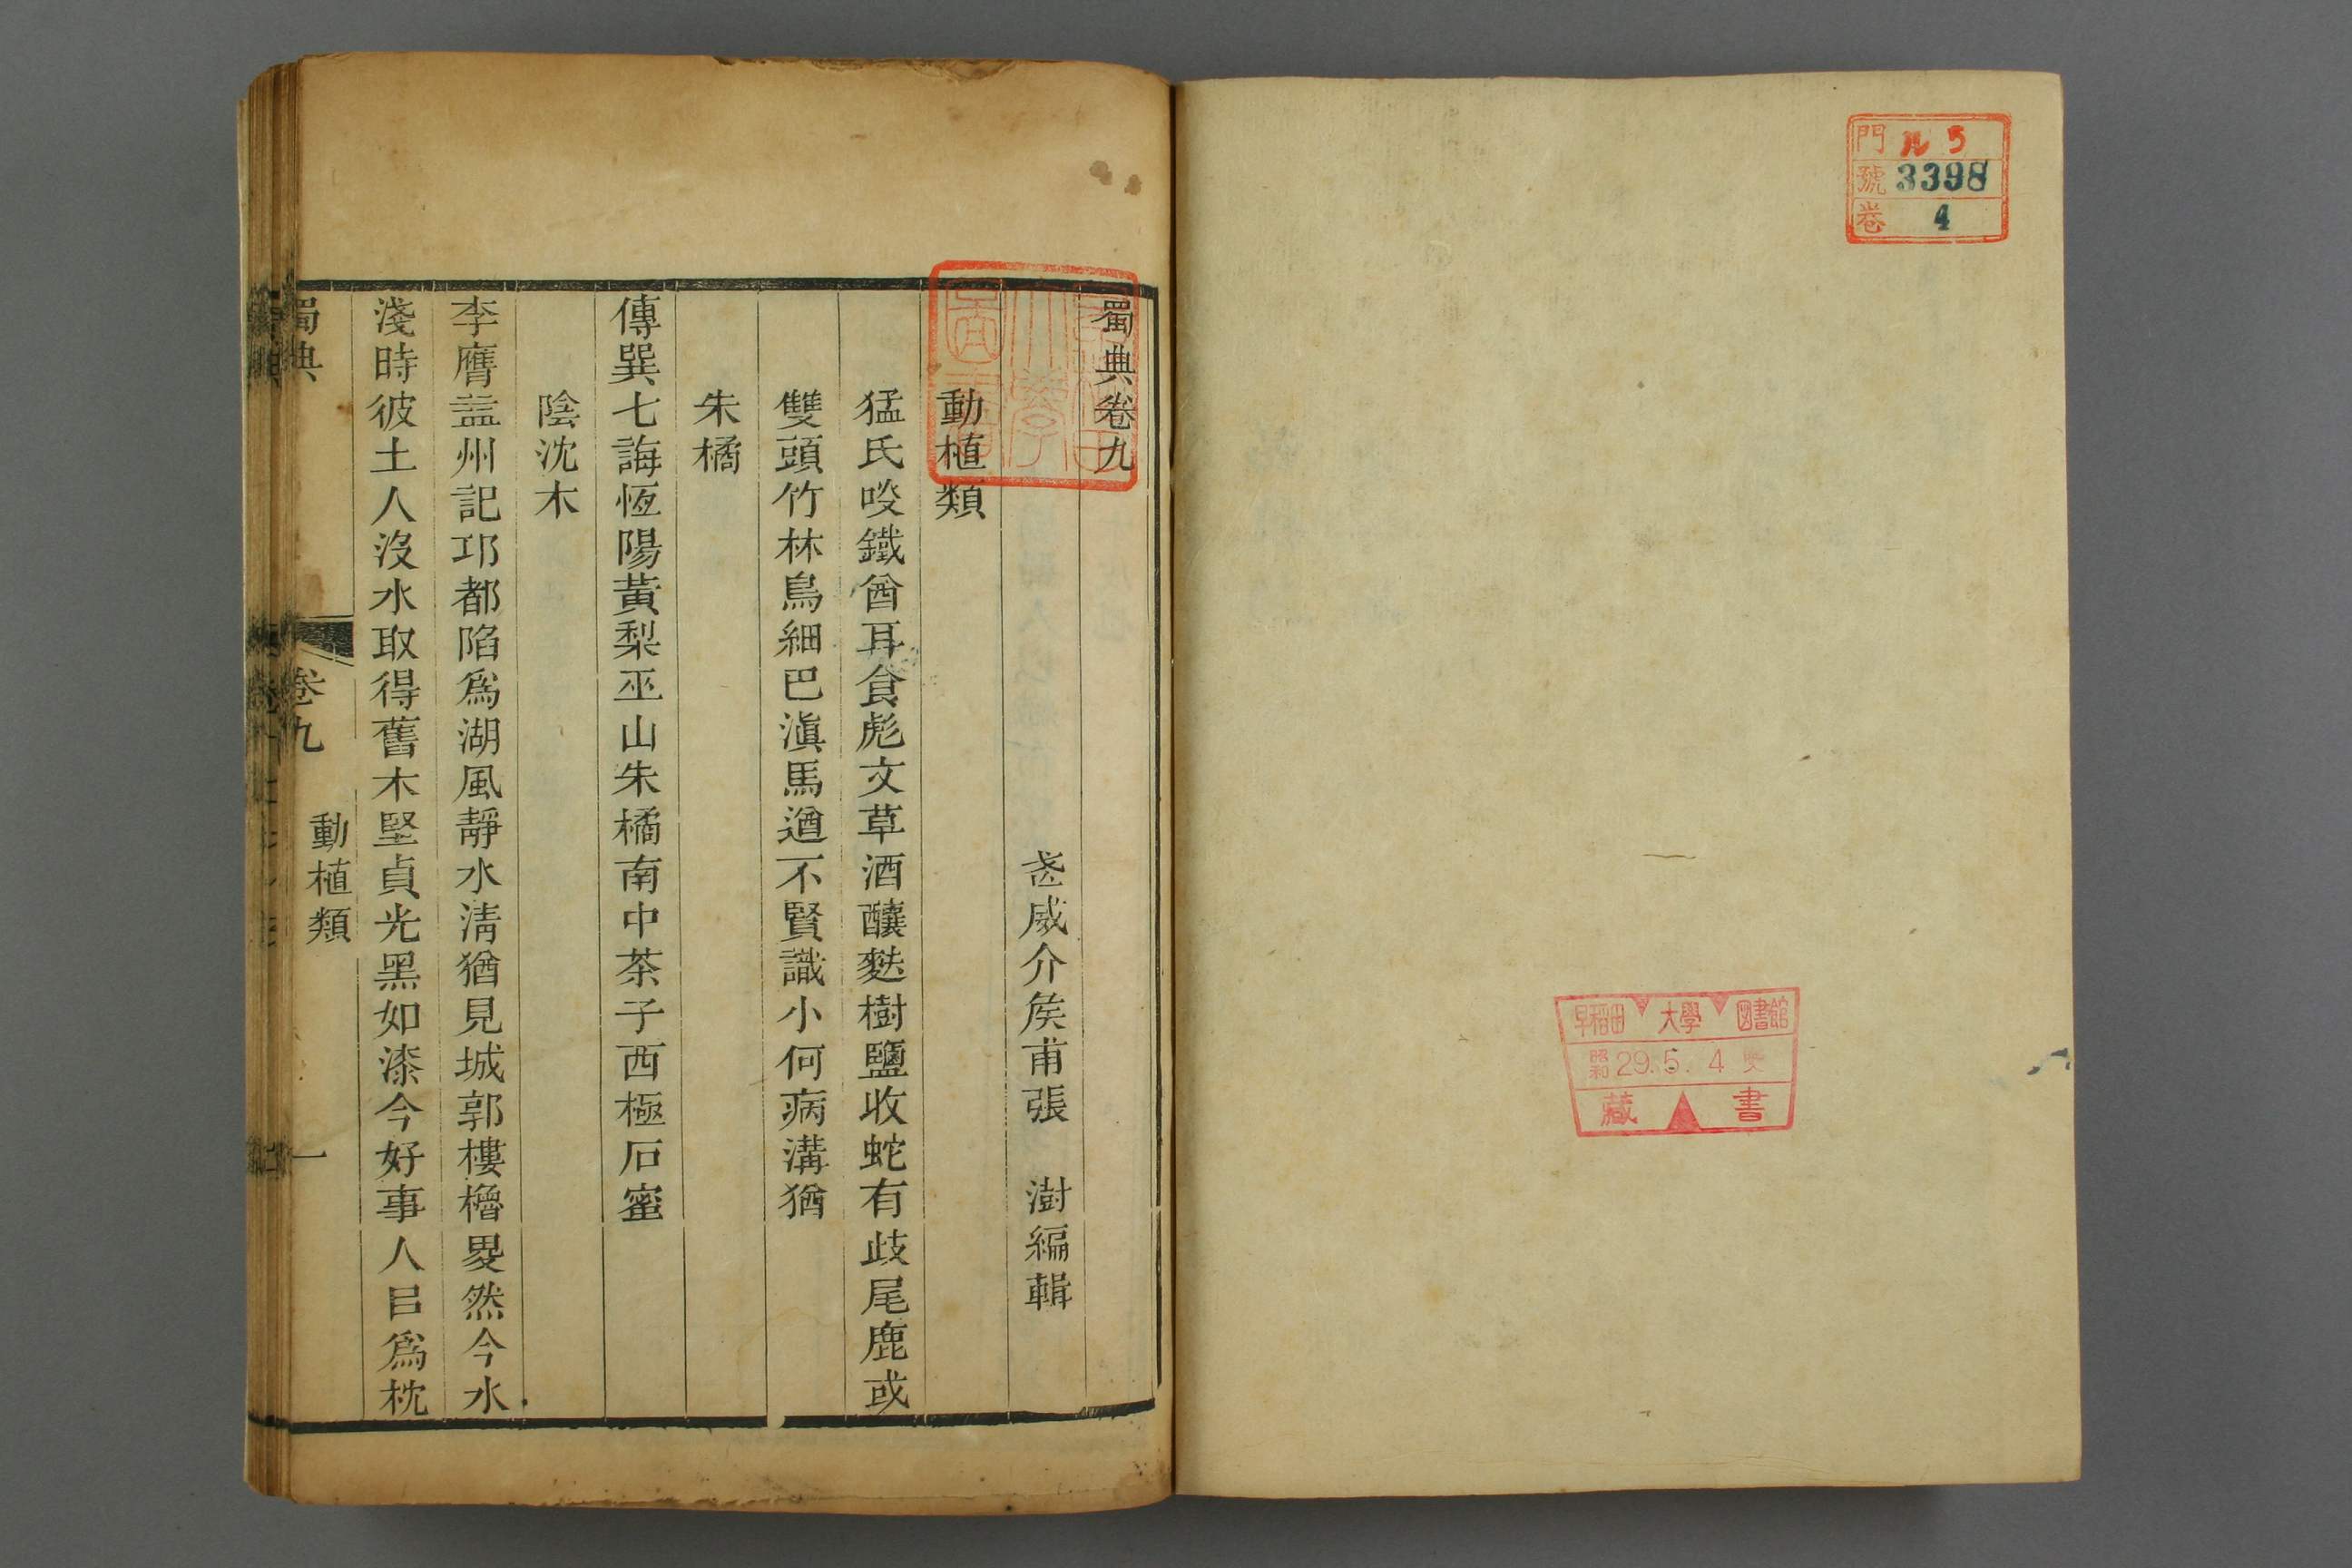 門 ル5
號 3398
卷 4
早稻田大學圖書館
昭和 29.5.4
藏書
蜀典卷九
武威介矦甫張 澍編輯
動植類
猛氏咬鐵酋耳食彪文草酒釀麩樹鹽收蛇有歧尾鹿或
雙頭竹林鳥細巴滇馬遒不賢識小何病溝猶
朱橘
傳巽七誨恆陽黃梨巫山朱橘南中茶子西極石蜜
陰沈木
李膺益州記邛都陷爲湖風靜水淸猶見城郭樓櫓畟然今水
淺時彼土人沒水取得舊木堅貞光黑如漆今好事人㠯爲枕
蜀典 卷九 動植類 一